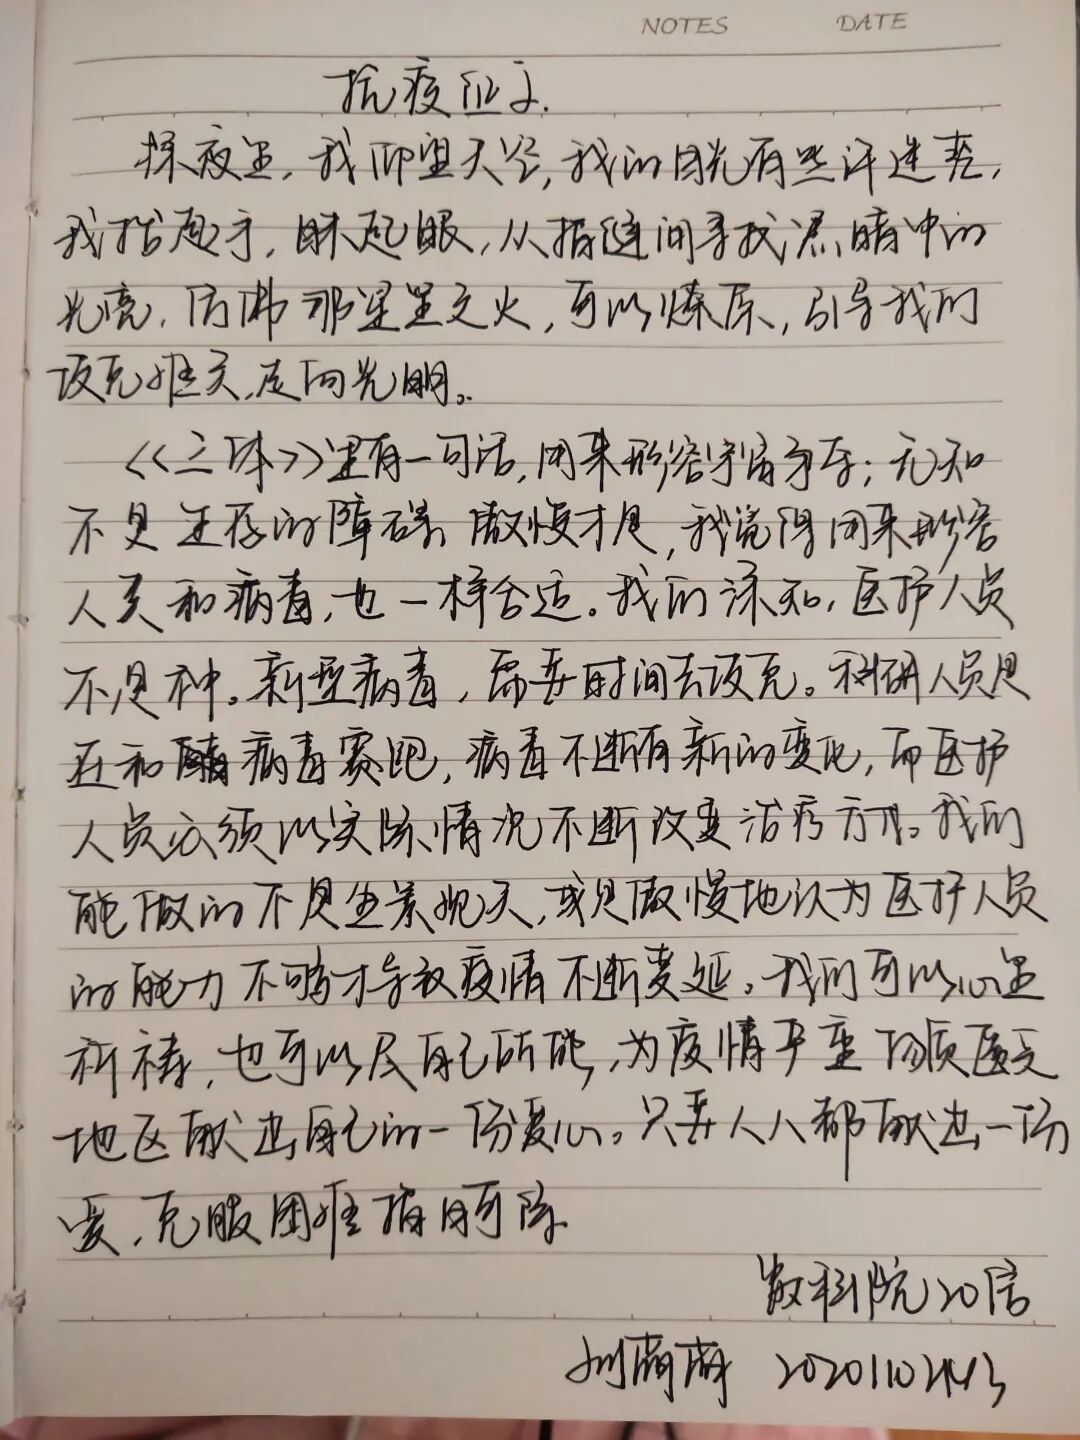 NOTES DATE
抗疫征文.
深夜里，我仰望天空，我的目光有些许迷茫，
我抬起手，眯起眼，从指缝间寻找黑暗中的
光亮，仿佛那星星之火，可以燎原，引导我们
攻克难关，走向光明。
《三体》里有一句话，用来形容宇宙争存：无知
不是生存的障碍，傲慢才是，我觉得用来形容
人类和病毒，也一样合适。我们深知，医护人员
不是神。新型病毒，需要时间去攻克。科研人员是
在和病毒赛跑，病毒不断有新的变化，而医护
人员必须以实际情况不断改变治疗方法。我们
能做的不是坐井观天，或是傲慢地认为医护人员
的能力不够才导致疫情不断蔓延。我们可以心里
祈祷，也可以尽自己所能，为疫情严重物质匮乏
地区献出自己的一份爱心。只要人人都献出一份
爱，克服困难指日可待.
数科院20信
刘雨雨 2020110244